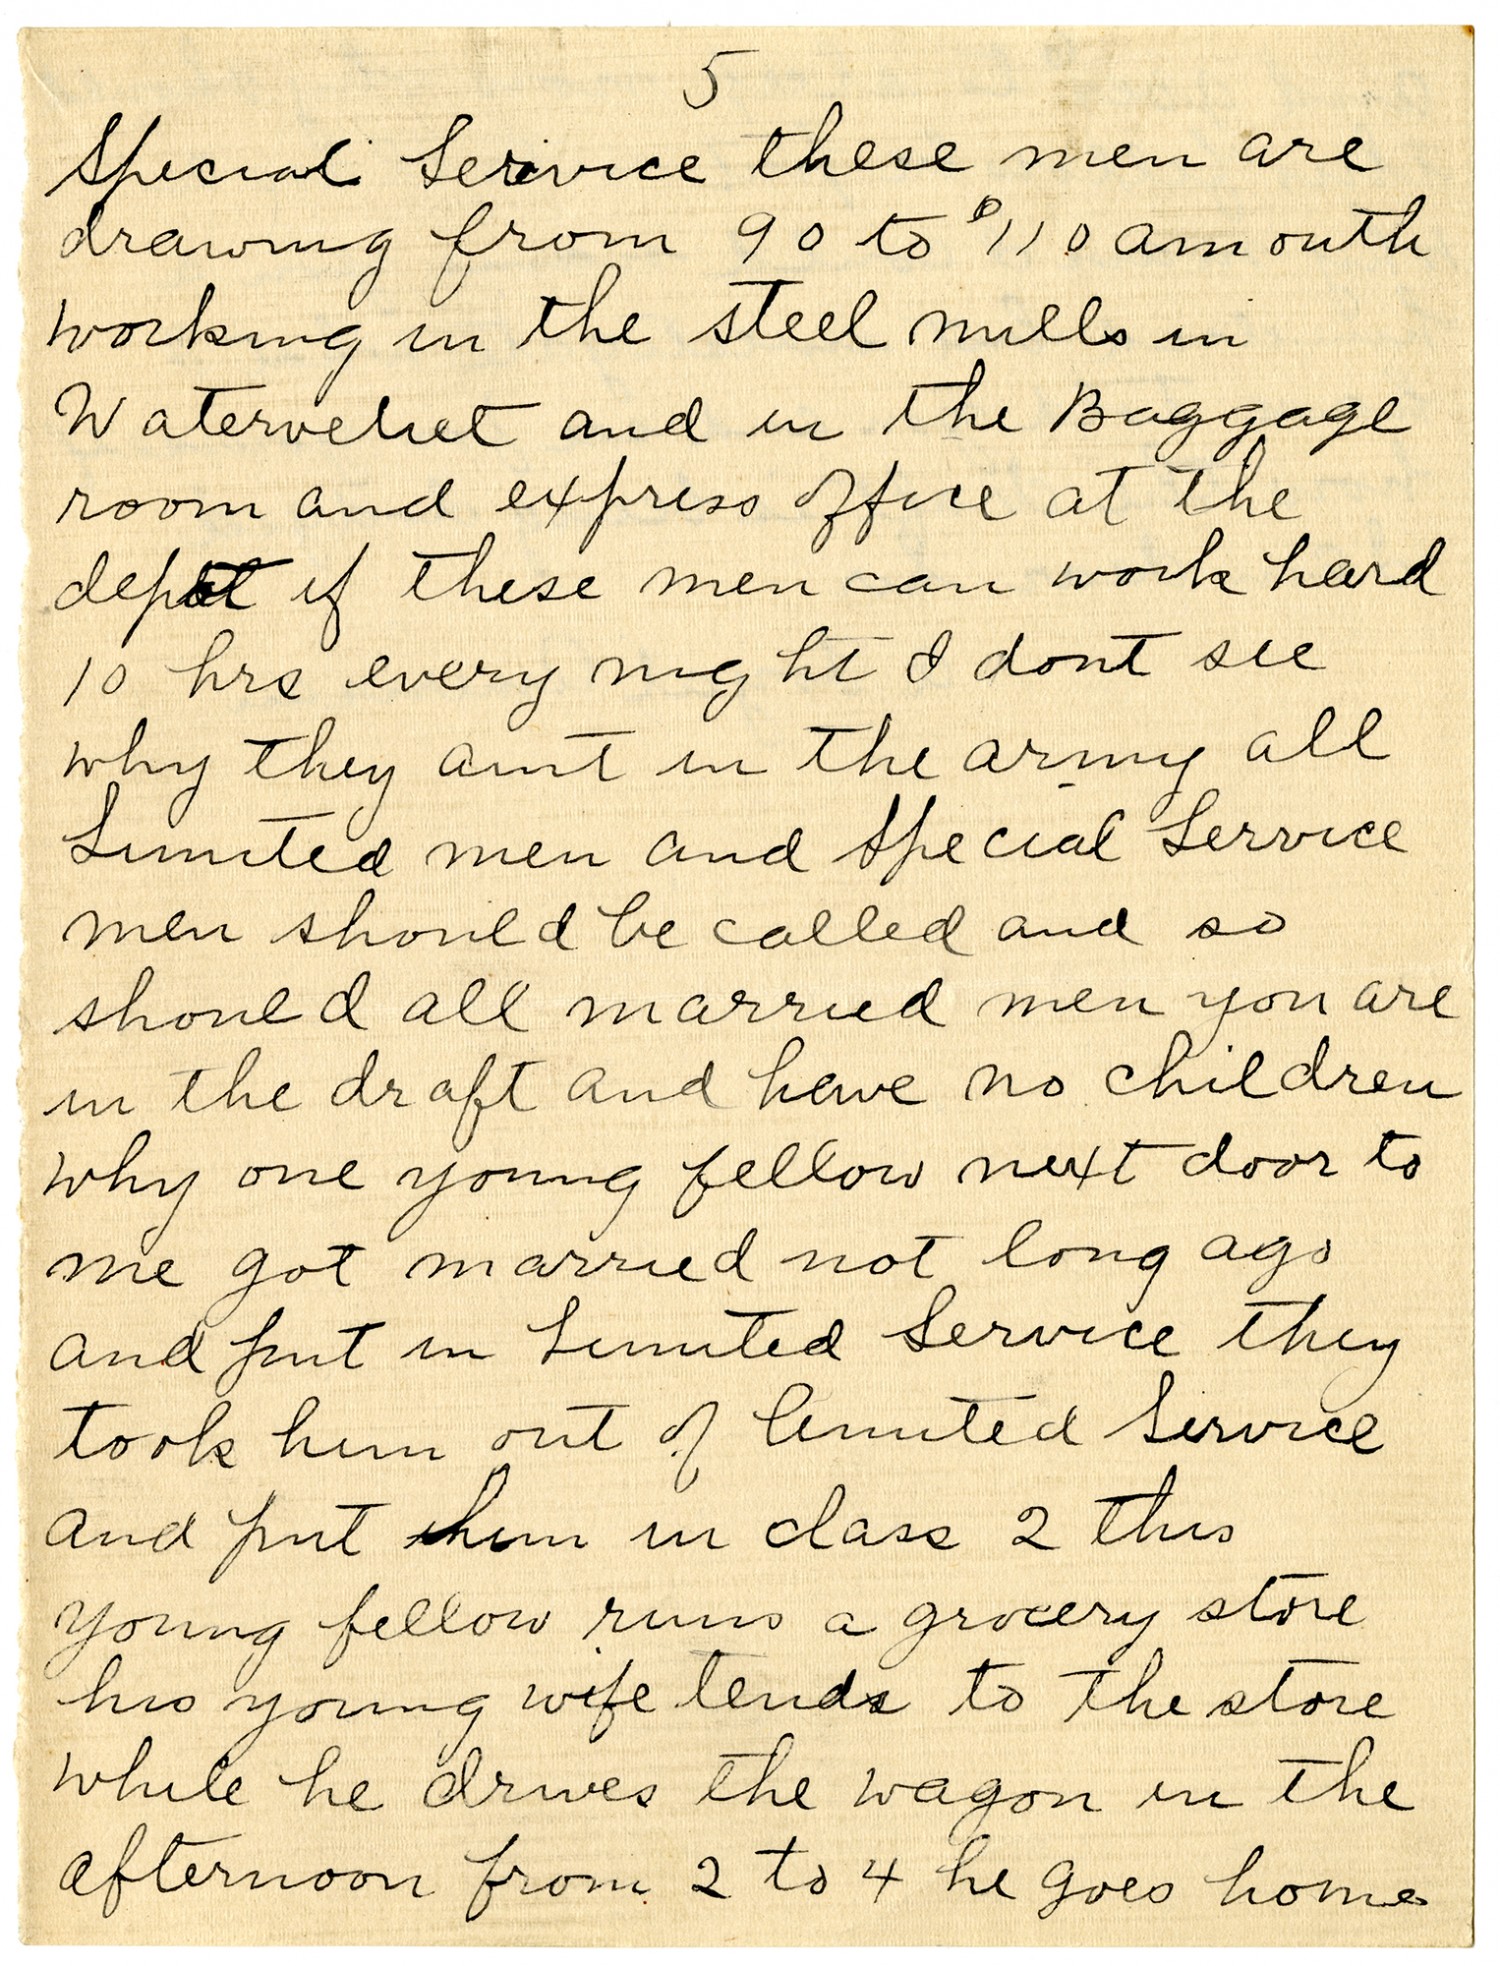 5
Special Service these men are
drawing from 90 to $110 a month
working in the steel mills in
Waterveliet and in the Baggage
room and express office at the
depot if these men can work hard
10 hrs every night I dont see
why they aint in the army all
Limited men and Special Service
men should be called and so
should all married men you are
in the draft and have no children
why one young fellow next door to
me got married not long ago
and put in Limited Service they
took him out of limited Service
and put him in class 2 this
young fellow runs a grocery store
his young wife tends to the store
while he drives the wagon in the
afternoon from 2 to 4 he goes home